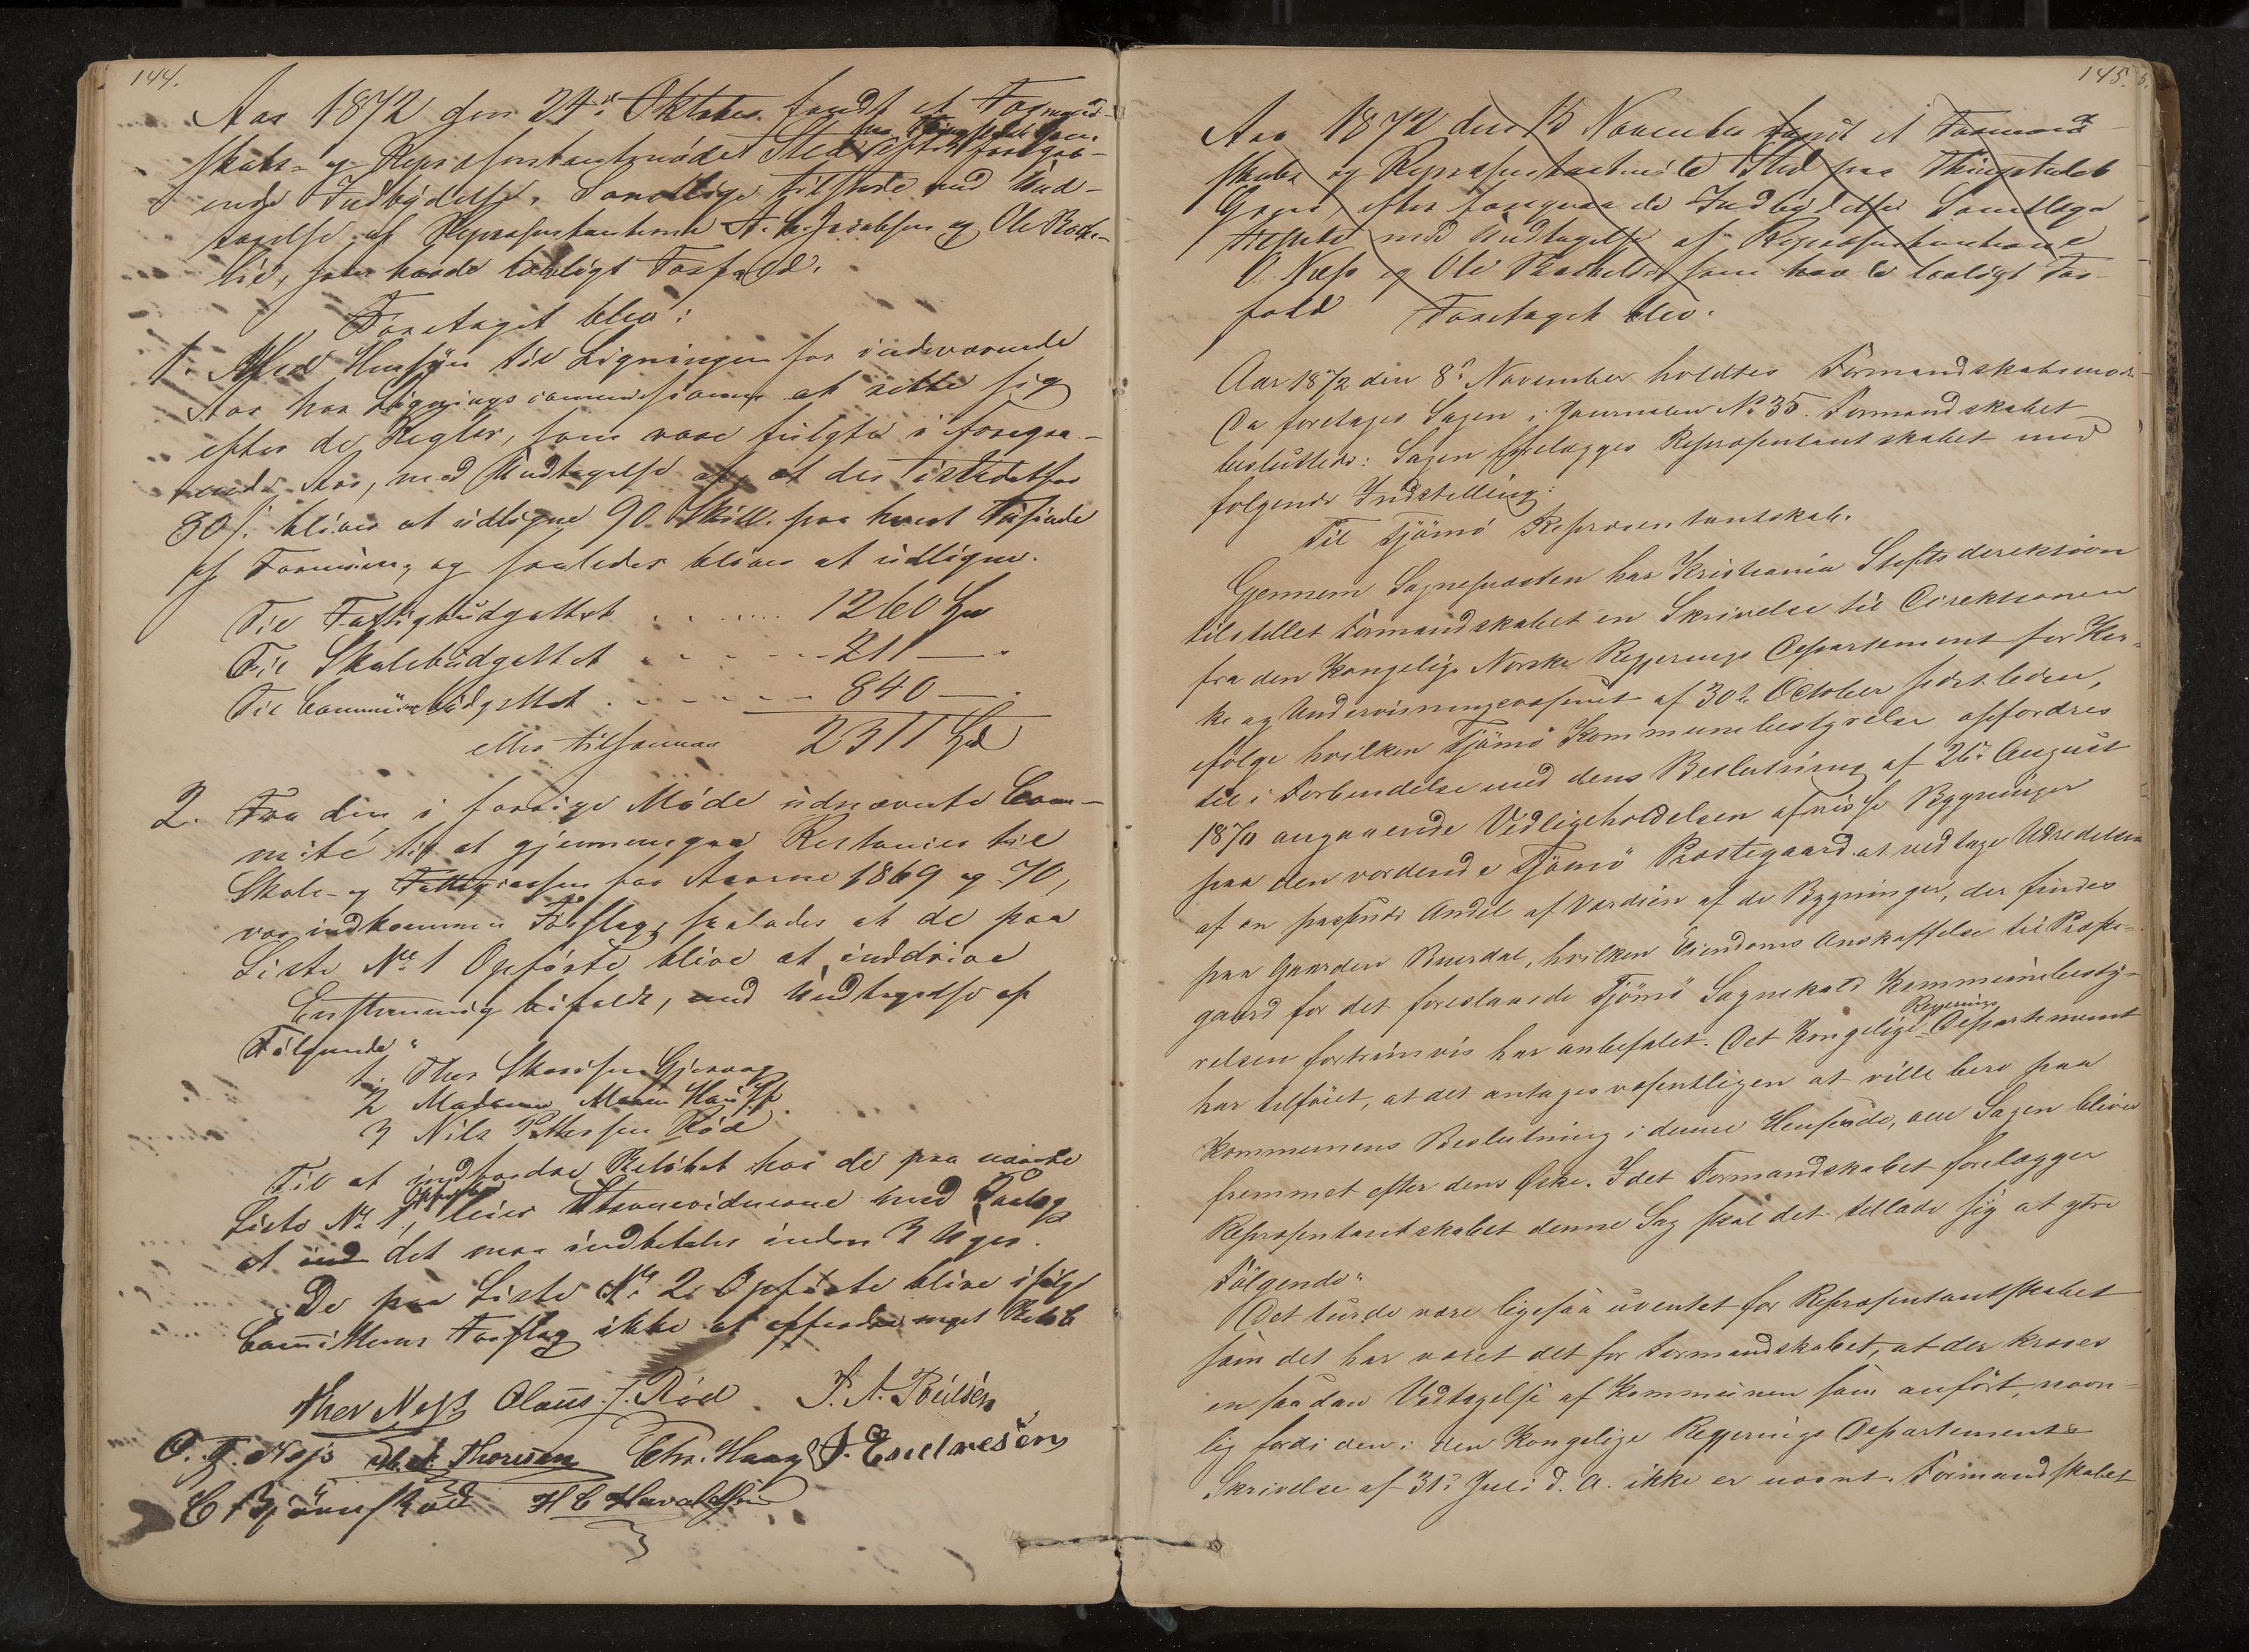 144.
Aar 1872 den 24de Oktober fandt et Formand-
skabs- og Repræsentantmøde Sted efter foregaa-
ende Indbydelse. Samtlige tilstede med Und-
tagelse af Repræsentanterne A. Jacobsen og Ole Bakke-
lid, som havde lovligt Forfald.
Foretaget blev:
1. Med Hensyn til Ligningen for indeværende
Aar har Ligningscommissionen at rette sig
efter de Regler, som vare fulgte i foregaa-
ende Aar, med Undtagelse af, at der istedetfor
80 s. bliver at udligne 90 Skill. paa hvert Tusinde
af Formuen, og saaledes bliver at udligne.
Til Fattigbudgettet . . . . . 1260 Spd
Til Skolebudgettet . . . . . 211 — "
Til Communebudgettet . . . . . 840 — "
eller tilsamman 2311 Spd
2. Fra den i forrige Møde udnævnte Com-
mité til at gjennemgaa Restancer til
Skole- og Fattigcassen for Aarene 1869 og 70,
var indkommen Forslag, saaledes at de paa
Liste No 1 Opførte blive at inddrive
Enstemmig bifaldt, med Undtagelse af
Følgende:
1. Thor
2 Madame Maren
3 Nils Pettersen Rød
Til at indfordre Beløbet hos de paa nævnte
Liste No 1 Opførte, leies Stevnevidnerne med Paalæg
at det maa indbetales inden 3 Uger.
De paa Liste No 2 Opførte blive ifølge
Comiteens Forslag ikke at affordre noget Beløb
Ther Næss Claus J. Rød. P. A. Poulsen
O. T. Næss Thoresen Chr. Haug J. Endresen
C Bjørnskod H C Havaldsen
145.
Aar 1872 den 15 November fandt et Formand-
skabs og Repræsentantmøde Sted paa Thingstedet
efter foregaaende Indbydelse Samtlige
tilstede med Undtagelse af Repræsentanterne
O. Næss og Ole Bakkelid som havde lovligt For-
fald Foretaget blev.
Aar 1872 den 8de November holdtes Formandskabsmøde.
Da foretages Sagen i Journalen No 35. Formandskabet
besluttede: Sagen forelægges Repræsentantskabet med
følgende Indstilling:
Til Tjømø Repræsentantskab.
Gennem Sognepræsten har Kristiania Stiftsdirektion
tilstillet Formandskabet en Skrivelse til Direktionen
fra den Kongelige Norske Regjerings Departement for Kir-
ke og Undervisningsvæsenet af 30te October sidstleden,
ifølge hvilken Tjømø Kommunebestyrelse opfordres
til i Forbindelse med dens Beslutning af 26de August
1870 angaaende Vedligeholdelsen af visse Bygninger
paa den vordende Tjømø Præstegaard at vedtage Udredelsen
af en passende Andel af Værdien af de Bygninger, der findes
paa Gaarden Buerdal, hvilken Eiendoms Anskaffelse til Præste-
gaard for det foreslaaede Tjømø Sognekald Kommunebesty-
relsen fortrinsvis har anbefalet. Det Kongelige Regjerings Departement
har tilføiet, at det antages væsentligen at ville bero paa
Kommunens Beslutning i denne Henseende, om Sagen bliver
fremmet efter dens Ønske. Idet Formandskabet forelægger
Repræsentantskabet denne Sag skal det tillade sig at ytre
Følgende:
Det turde være ligesaa uventet for Repræsentantskabet
som det har været det for Formandskabet, at der kræves
en saadan Vedtagelse af Kommunen som anført, navn-
lig fordi den i den Kongelige Regjerings Departements
Skrivelse af 31te Juli d. A. ikke er nævnt. Formandskabet